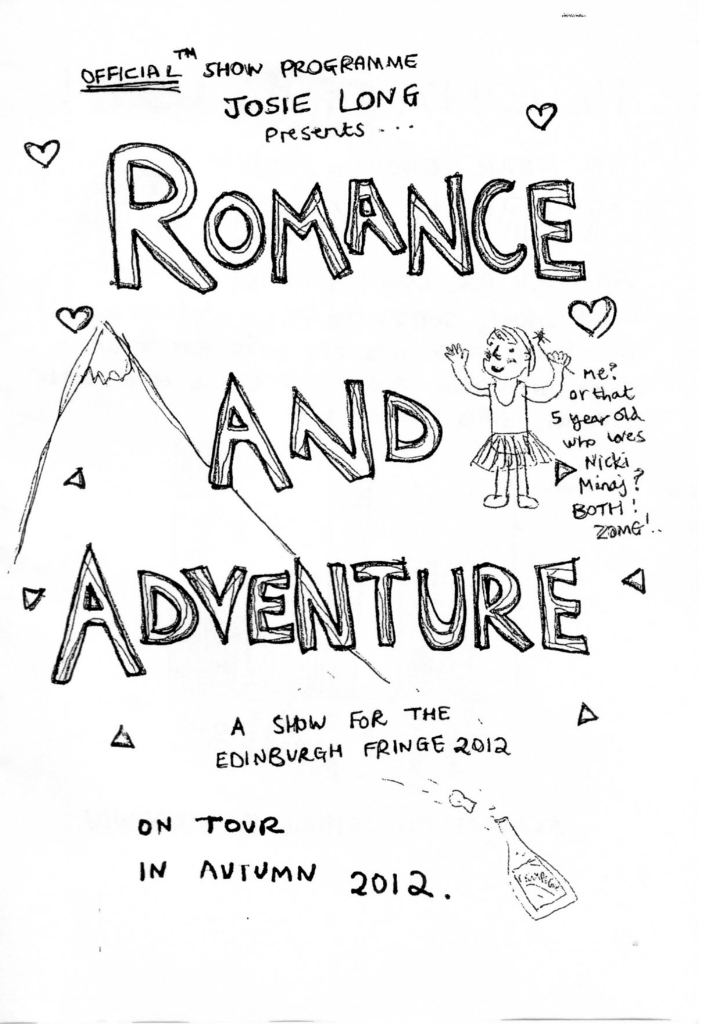 OFFICIAL™ SHOW PROGRAMME
JOSIE LONG
Presents ...
ROMANCE
AND
ADVENTURE
me?
or that
5 year old
who loves
Nicki
Minaj?
BOTH!
ZOMG!..
A SHOW FOR THE
EDINBURGH FRINGE 2012
ON TOUR
IN AUTUMN 2012.